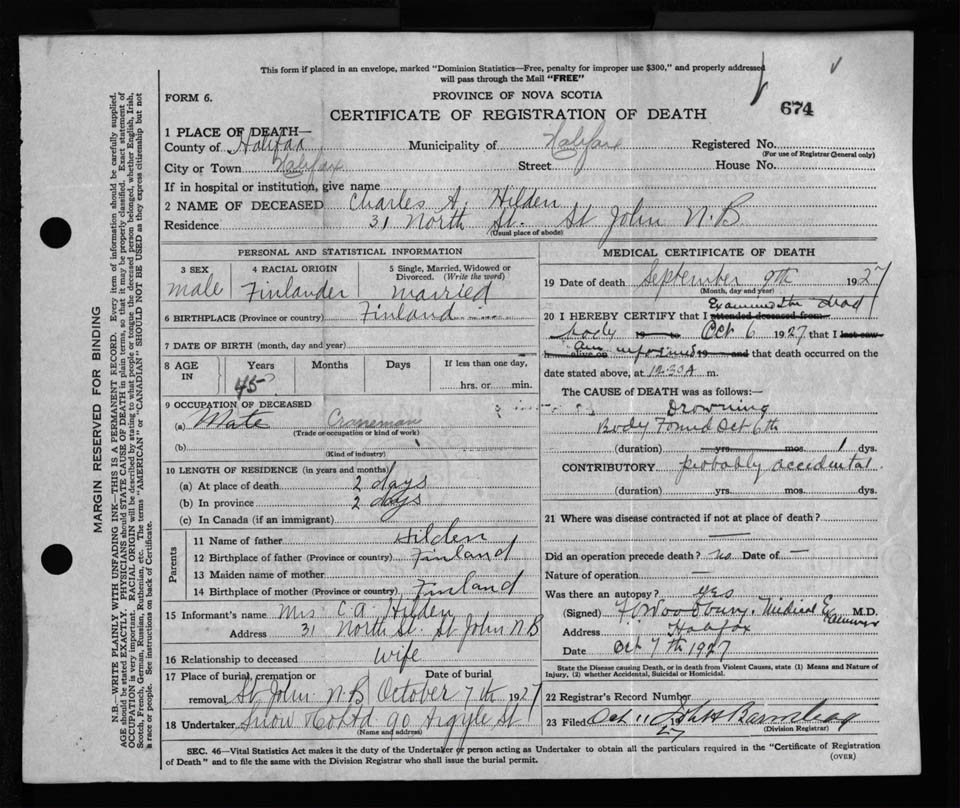 This form if placed in an envelope, marked "Dominion Statistics—Free, penalty for improper use $300," and properly addressed
will pass through the Mail "FREE"
FORM 6.
PROVINCE OF NOVA SCOTIA
CERTIFICATE OF REGISTRATION OF DEATH
674
1 PLACE OF DEATH—
County of Halifax Municipality of Halifax Registered No.
(For use of Registrar General only)
City or Town Halifax Street House No.
If in hospital or institution, give name
2 NAME OF DECEASED Charles A. Hilden
Residence 31 North St. St John N.B
(Usual place of abode)
PERSONAL AND STATISTICAL INFORMATION
3 SEX 4 RACIAL ORIGIN 5 Single, Married, Widowed or
Divorced. (Write the word)
Male Finlander Married
6 BIRTHPLACE (Province or country) Finland
7 DATE OF BIRTH (month, day and year)
8 AGE IN Years Months Days If less than one day,
45 hrs. or min.
9 OCCUPATION OF DECEASED
(a) Mate Craneman
(Trade or occupation or kind of work)
(b)
(Kind of industry)
10 LENGTH OF RESIDENCE (in years and months)
(a) At place of death 2 days
(b) In province 2 days
(c) In Canada (if an immigrant)
Parents
11 Name of father Hilden
12 Birthplace of father (Province or country) Finland
13 Maiden name of mother
14 Birthplace of mother (Province or country) Finland
15 Informant's name Mrs C. A. Hilden
Address 31 North St. St John N B
16 Relationship to deceased wife
17 Place of burial, cremation or Date of burial
removal St John N B October 7th 1927
18 Undertaker Snow Co Ltd 90 Argyle St
(Name and address)
MEDICAL CERTIFICATE OF DEATH
19 Date of death September 9th 1927
(Month, day and year)
Examined the dead
20 I HEREBY CERTIFY that I attended deceased from
body 19 to Oct 6 1927 that I last saw
am informed
h alive on 19 and that death occurred on the
date stated above, at 12-30 A m.
The CAUSE OF DEATH was as follows:
Drowning
Body Found Oct 6th
(duration) yrs. mos. 1 dys.
CONTRIBUTORY probably accidental
(duration) yrs. mos. dys.
21 Where was disease contracted if not at place of death?
Did an operation precede death? no Date of —
Nature of operation —
Was there an autopsy? yes
(Signed) F. Woodbury. Medical Examiner M.D.
Address Halifax
Date Oct 7th 1927
State the Disease causing Death, or in death from Violent Causes, state (1) Means and Nature of
Injury, (2) whether Accidental, Suicidal or Homicidal.
22 Registrar's Record Number
23 Filed Oct 11 27
(Division Registrar)
SEC. 46—Vital Statistics Act makes it the duty of the Undertaker or person acting as Undertaker to obtain all the particulars required in the "Certificate of Registration
of Death" and to file the same with the Division Registrar who shall issue the burial permit.
(OVER)
MARGIN RESERVED FOR BINDING
N.B.—WRITE PLAINLY WITH UNFADING INK—THIS IS A PERMANENT RECORD. Every item of information should be carefully supplied.
AGE should be stated EXACTLY. PHYSICIANS should STATE CAUSE OF DEATH in plain terms, so that it may be properly classified. Exact statement of
OCCUPATION is very important. RACIAL ORIGIN will be described by stating to what people or tongue the deceased person belonged, whether English, Irish,
Scotch, French, German, Russian, Ruthenian, etc. The terms "AMERICAN" or "CANADIAN" SHOULD NOT BE USED as they express citizenship but not
a race or people. See instructions on back of Certificate.